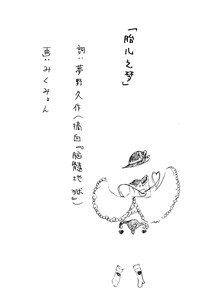 「胎児之夢」
詞：夢野久作（摘自『脳髄地獄』）
画：みくみょん